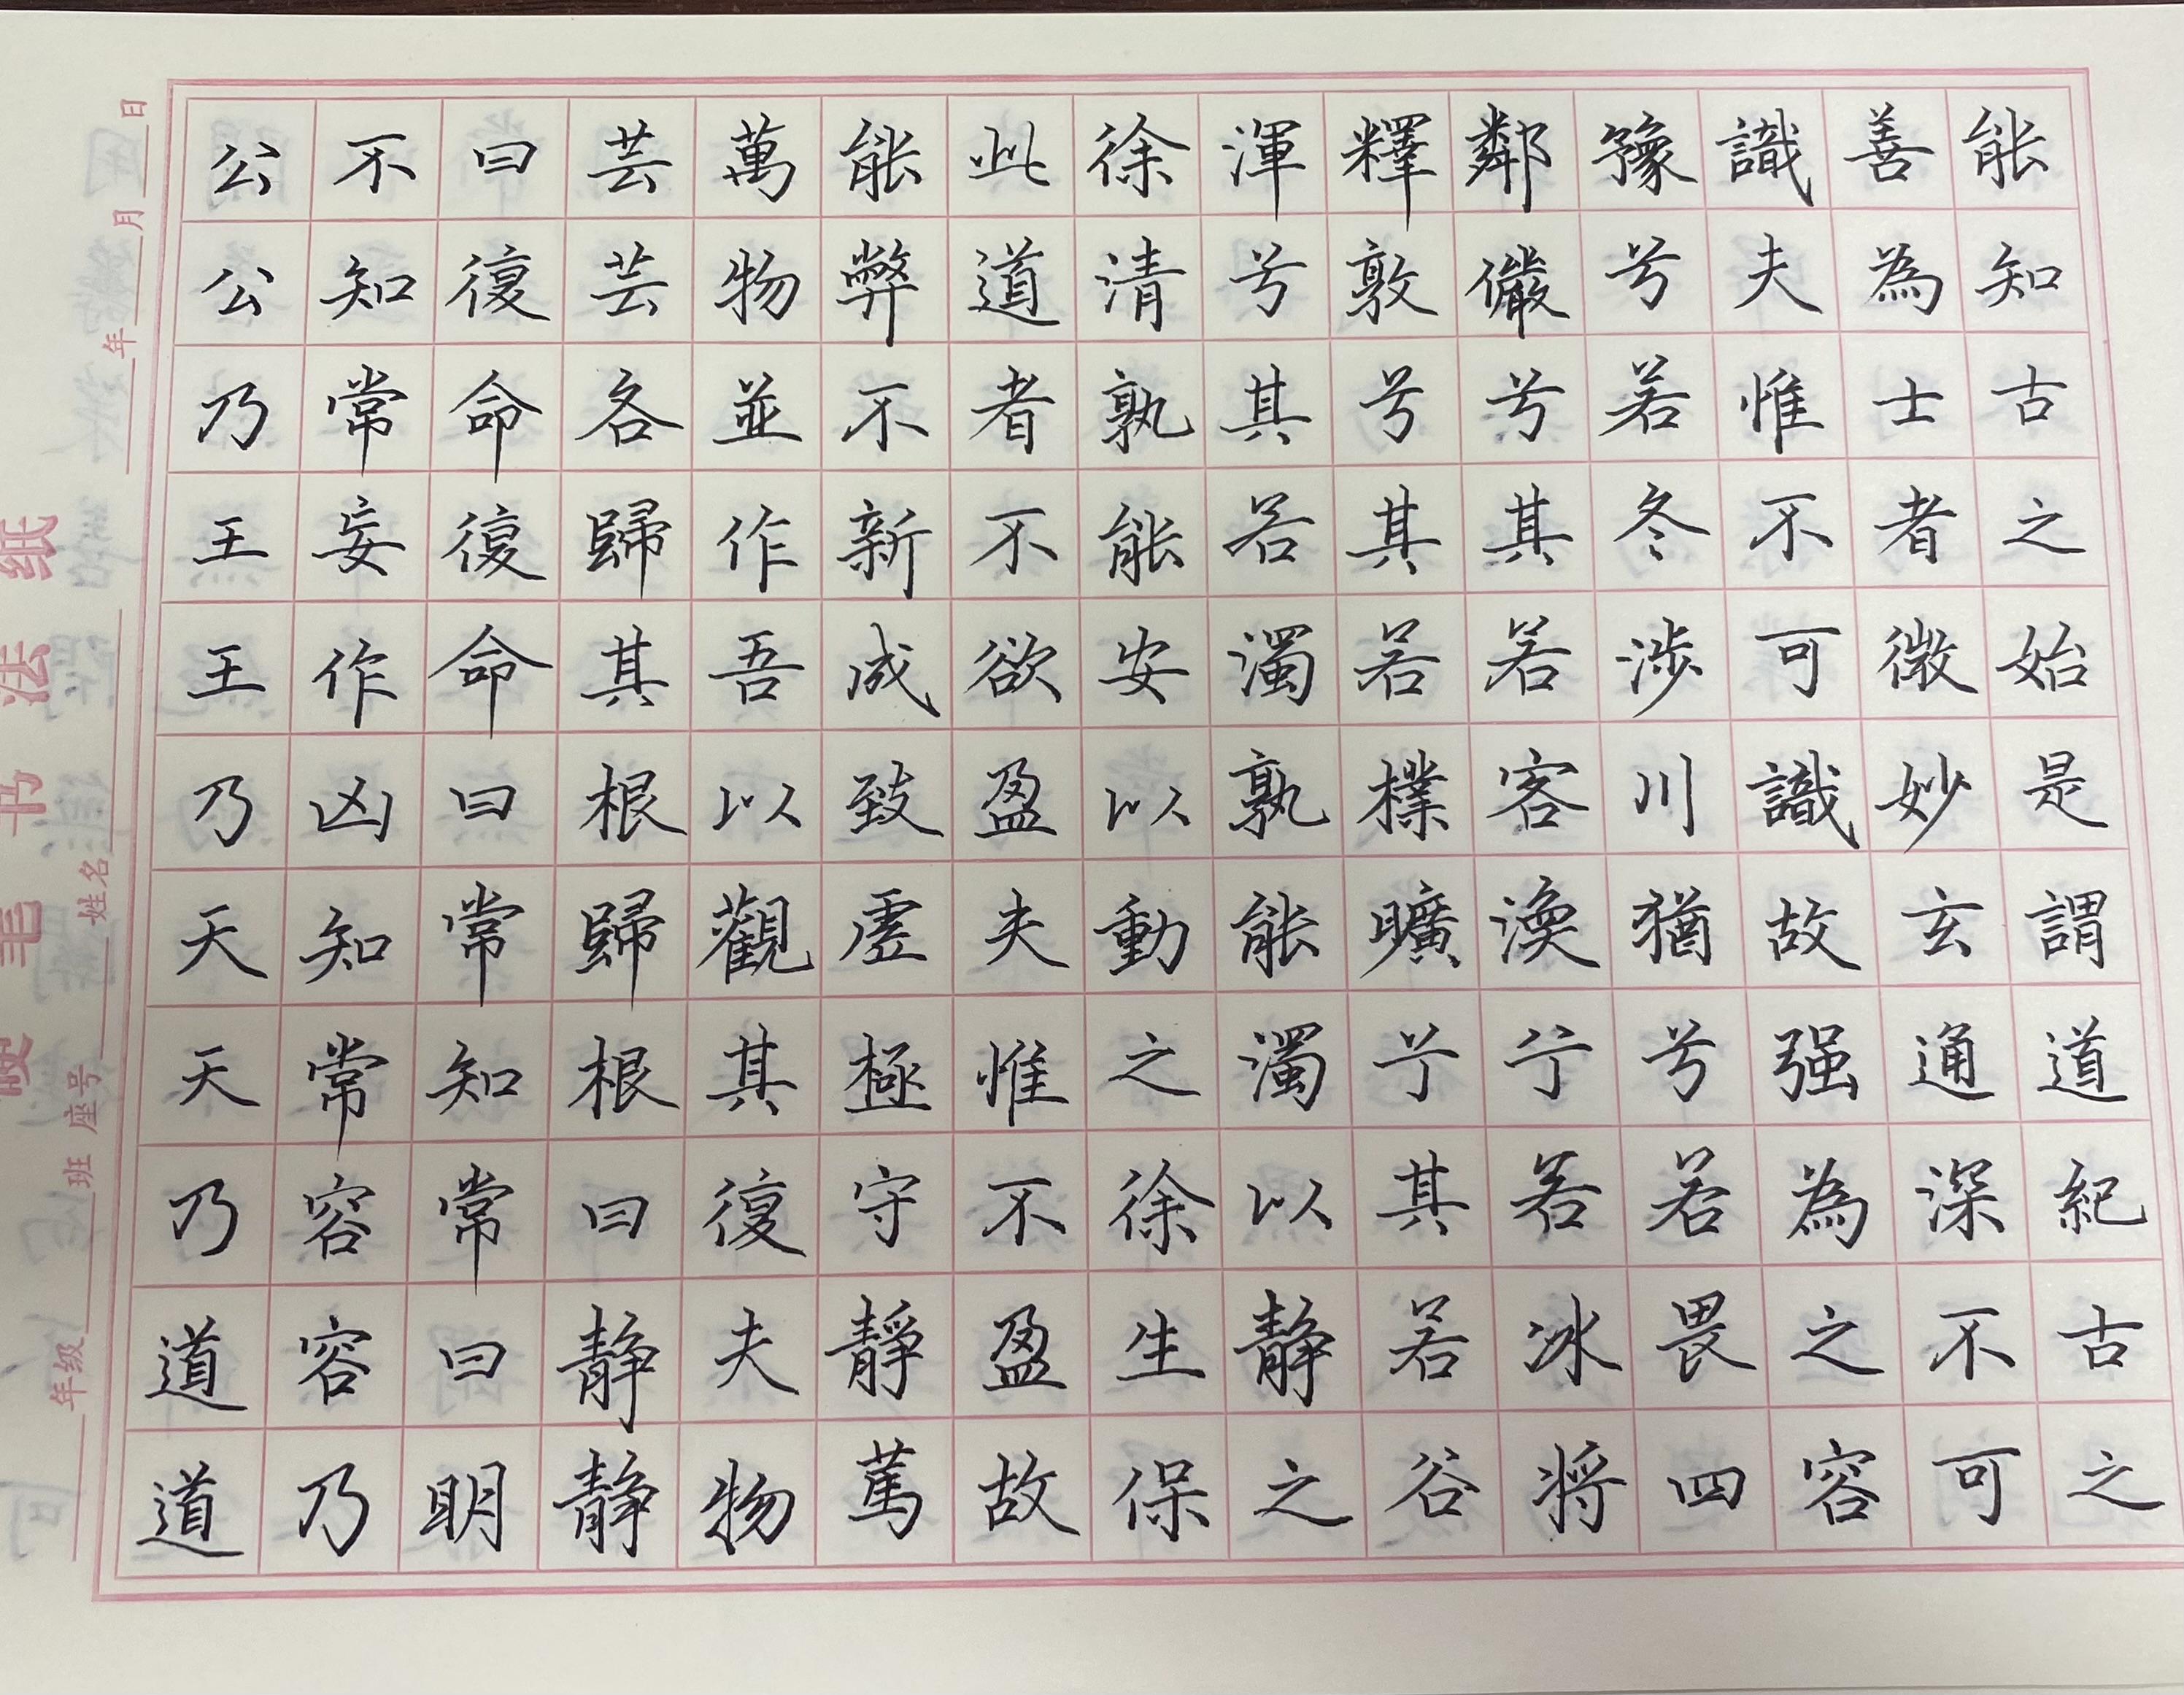 能知古之始是謂道紀古之
善為士者微妙玄通深不可
識夫惟不可識故强為之容
豫兮若冬涉川猶兮若畏四
鄰儼兮其若客渙兮若冰将
釋敦兮其若樸曠兮其若谷
渾兮其若濁孰能濁以静之
徐清孰能安以動之徐生保
此道者不欲盈夫惟不盈故
能弊不新成致虛極守靜篤
萬物並作吾以觀其復夫物
芸芸各歸其根歸根曰静静
曰復命復命曰常知常曰明
不知常妄作凶知常容容乃
公公乃王王乃天天乃道道
年级 班 座号 姓名 年 月 日
硬笔书法纸